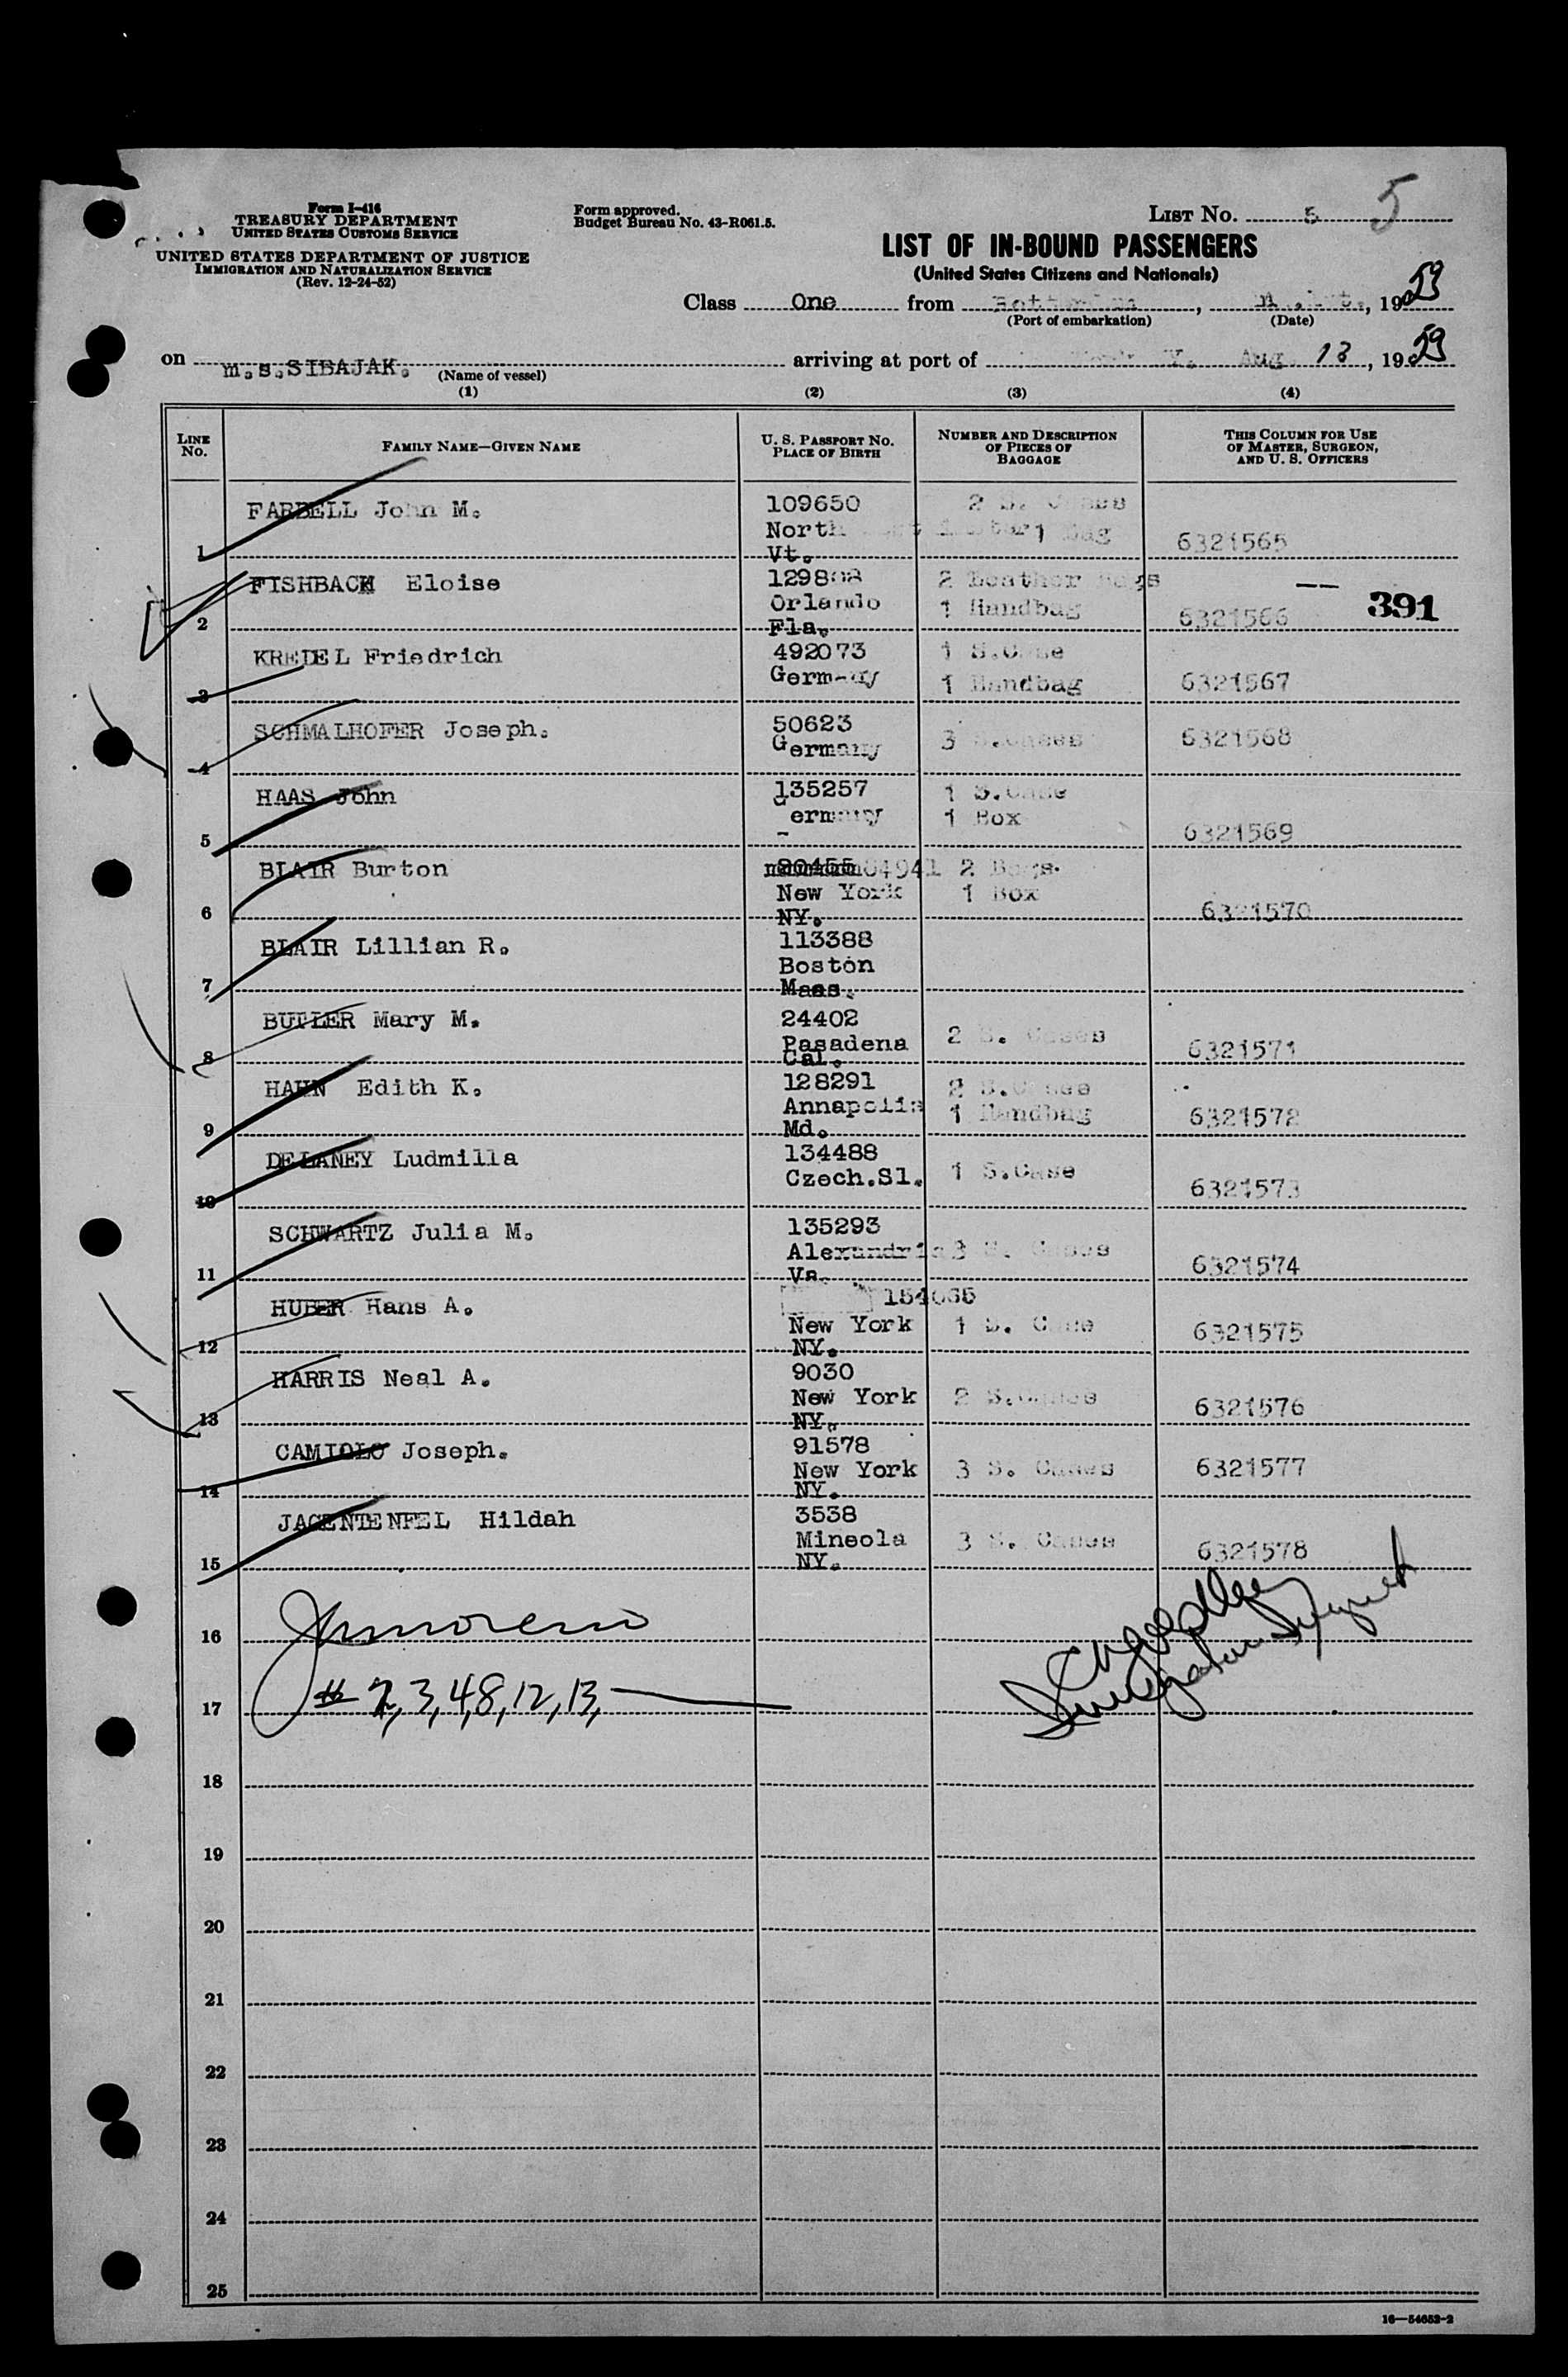 Form I-416
TREASURY DEPARTMENT
UNITED STATES CUSTOMS SERVICE
UNITED STATES DEPARTMENT OF JUSTICE
IMMIGRATION AND NATURALIZATION SERVICE
(Rev. 12-24-52)
Form approved.
Budget Bureau No. 43-R061.5.
LIST No. 5 5
LIST OF IN-BOUND PASSENGERS
(United States Citizens and Nationals)
Class One from Rotterdam, , 1959
(Port of embarkation) (Date)
on m.s.SIBAJAK. arriving at port of Aug. 13, 1959
(Name of vessel)
(1) (2) (3) (4)
LINE NO.
FAMILY NAME—GIVEN NAME
U. S. PASSPORT NO.
PLACE OF BIRTH
NUMBER AND DESCRIPTION
OF PIECES OF
BAGGAGE
THIS COLUMN FOR USE
OF MASTER, SURGEON,
AND U. S. OFFICERS
1 FARBELL John M. 109650 2 S. Cases
North 1 Bag 6321565
Vt.
2 FISHBACK Eloise 129808 2 Leather Bags
Orlando 1 Handbag 6321566 391
Fla.
3 KREIEL Friedrich 492073 1 S.Case
Germany 1 Handbag 6321567
4 SCHMALHOFER Joseph. 50623
Germany 3 S.Cases 6321568
5 HAAS John 135257 1 S.Case
Germany 1 Box 6321569
6 BLAIR Burton 80455 84941 2 Bags.
New York 1 Box 6321570
NY.
7 BLAIR Lillian R. 113388
Boston
Mass.
8 BUTLER Mary M. 24402
Pasadena 2 S. Cases 6321571
Cal.
9 HAHN Edith K. 128291 2 S.Case
Annapolis 1 Handbag 6321572
Md.
10 DELANEY Ludmilla 134488
Czech.Sl. 1 S.Case 6321573
11 SCHWARTZ Julia M. 135293
Alexandria 3 S. Cases 6321574
Va.
12 HUBER Hans A. 154065
New York 1 S. Case 6321575
NY.
13 HARRIS Neal A. 9030
New York 2 S.Cases 6321576
NY.
14 CAMIOLO Joseph. 91578
New York 3 S. Cases 6321577
NY.
15 JAGENTENFEL Hildah 3538
Mineola 3 S. Cases 6321578
NY.
16 Jmmoreno
17 # 2, 3, 4, 8, 12, 13,
18
19
20
21
22
23
24
25
16—54652-2